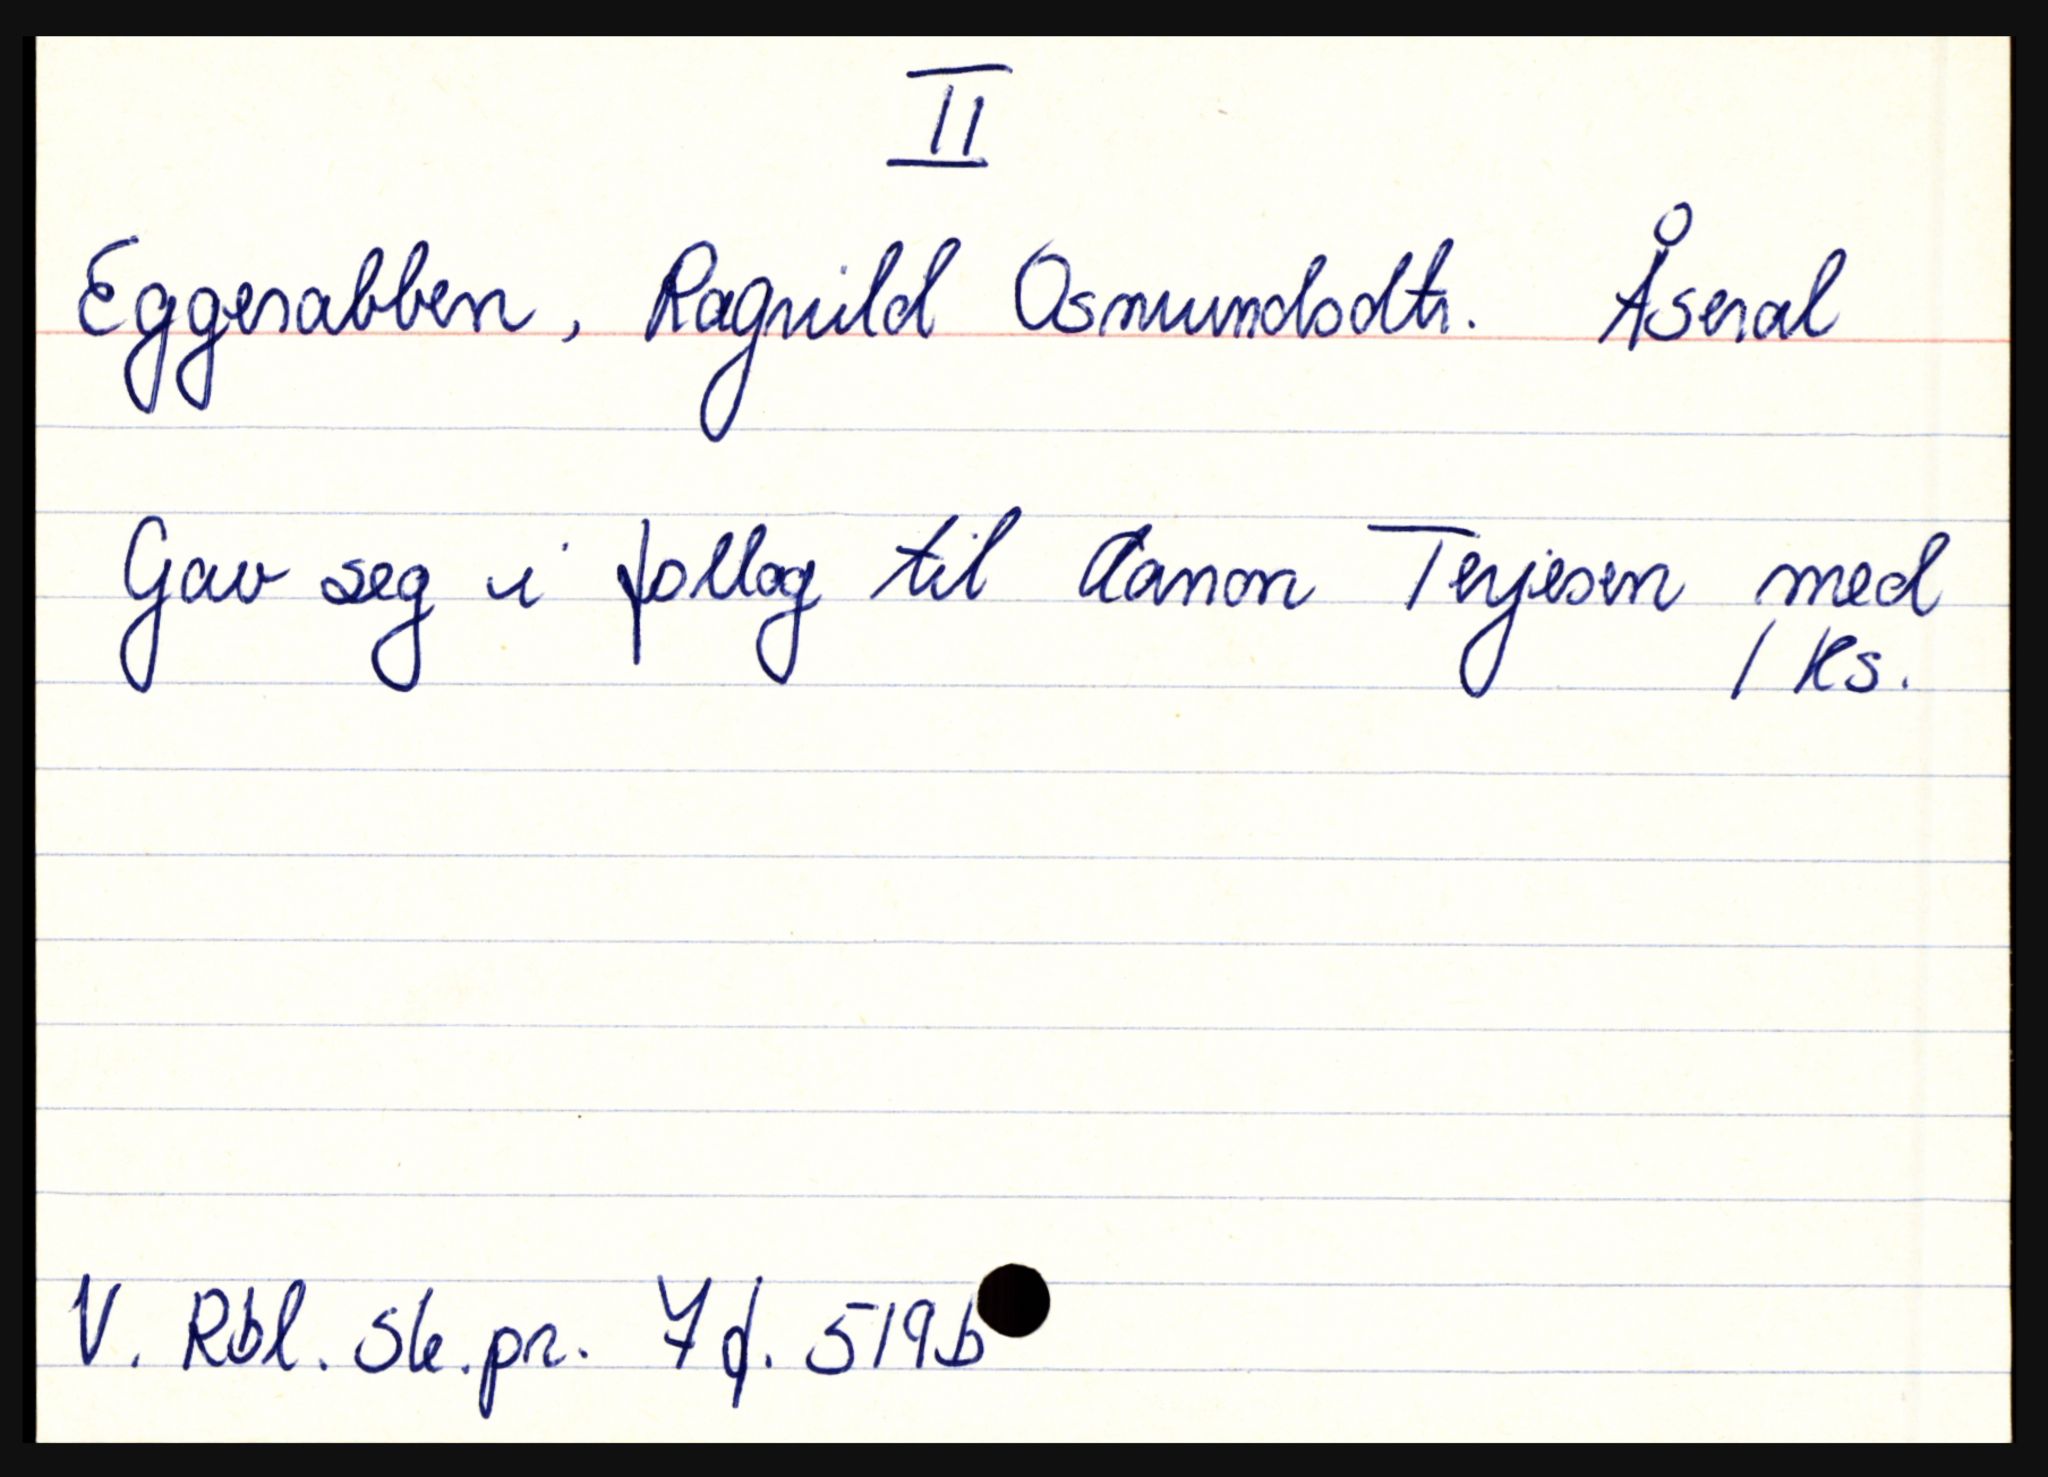 II
Eggerabben, Ragnild Osmundsdtr. Åseral
Gav seg i follog til Aanon Terjesen med
1 Ks.
V. Rbl. Sk.pr. 7 f. 519b